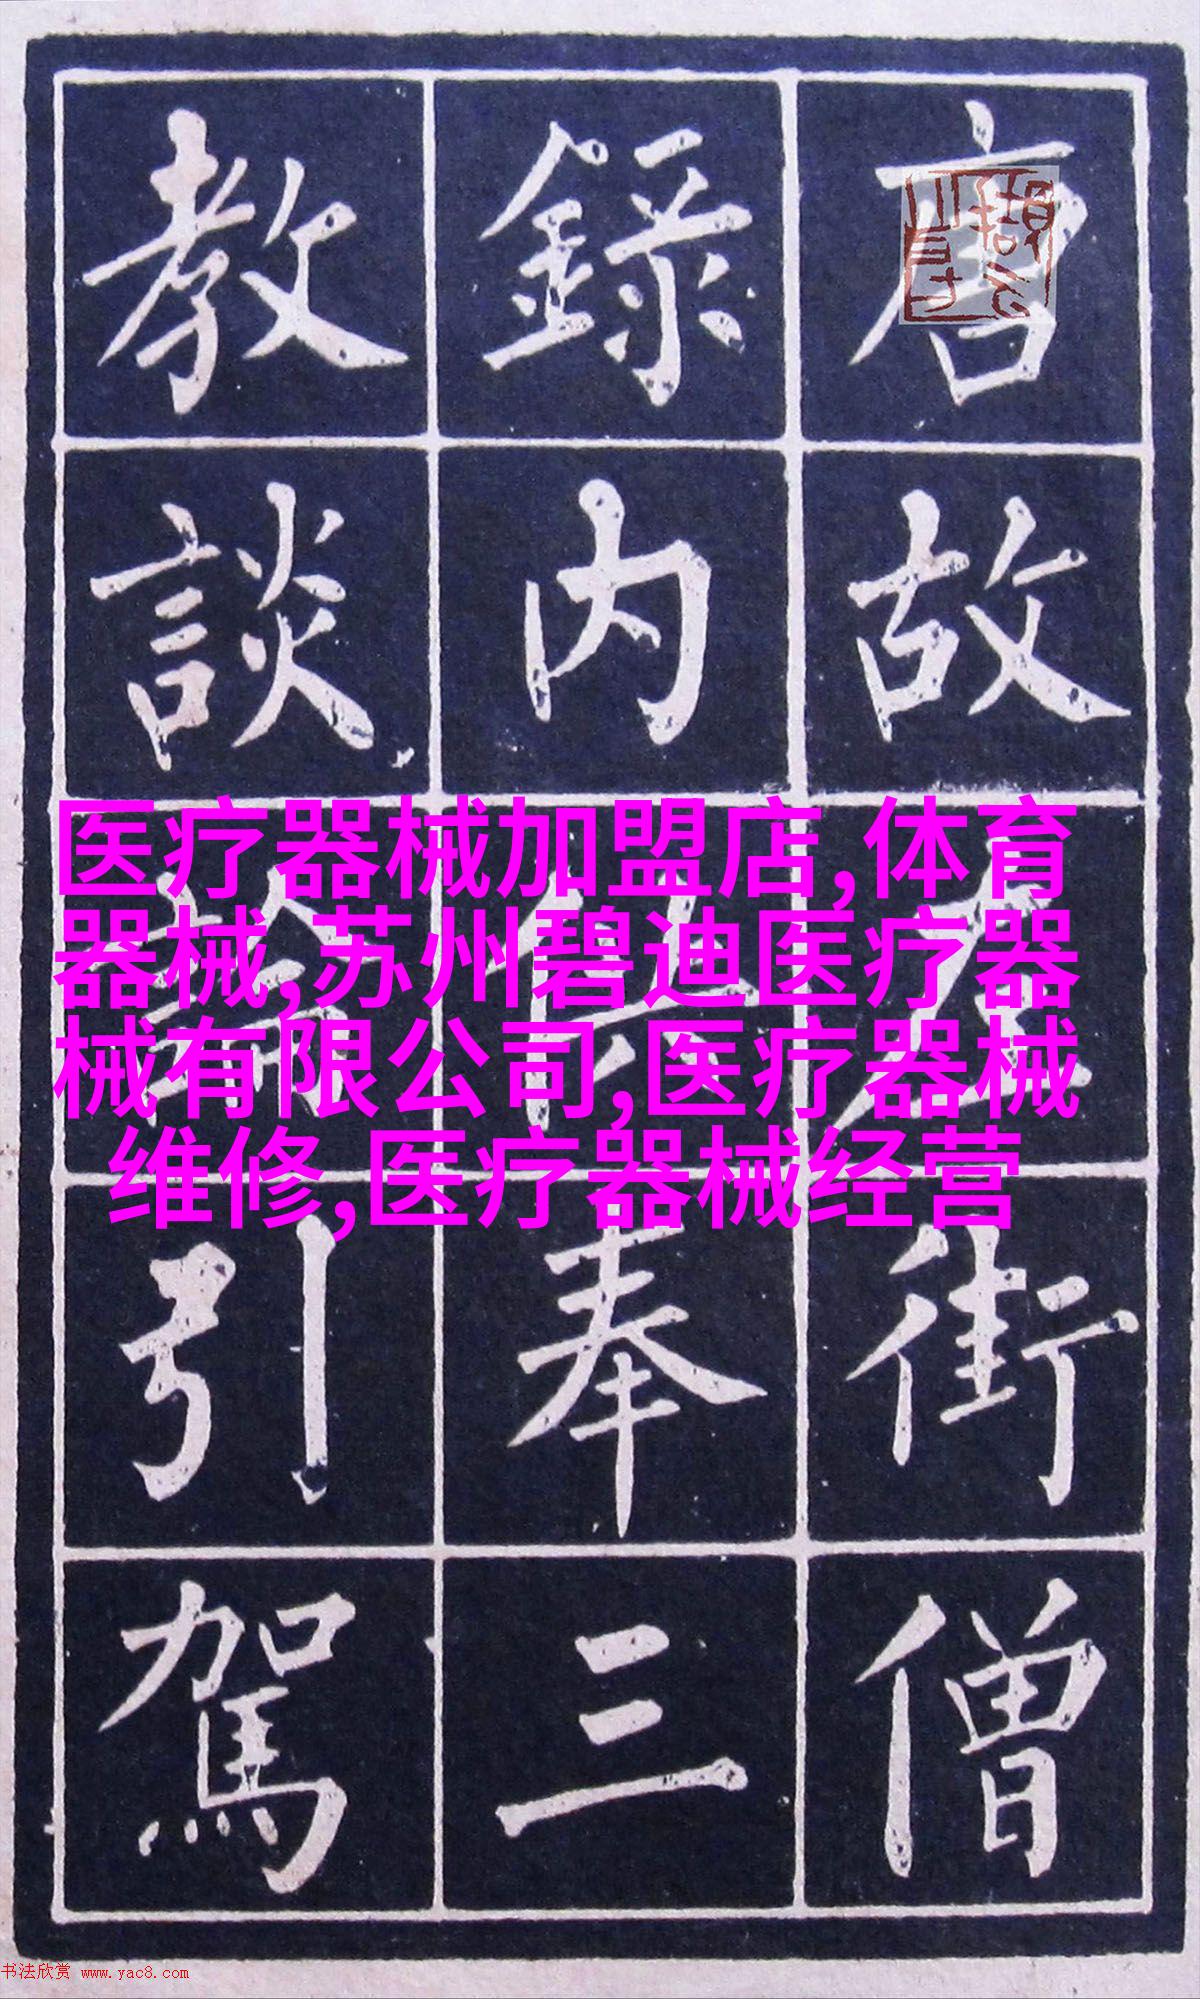 唐故左街僧
錄内供奉三
教談論引駕
医疗器械加盟店,体育
器械,苏州碧迪医疗器
械有限公司,医疗器械
维修,医疗器械经营
书法欣赏 www.yac8.com